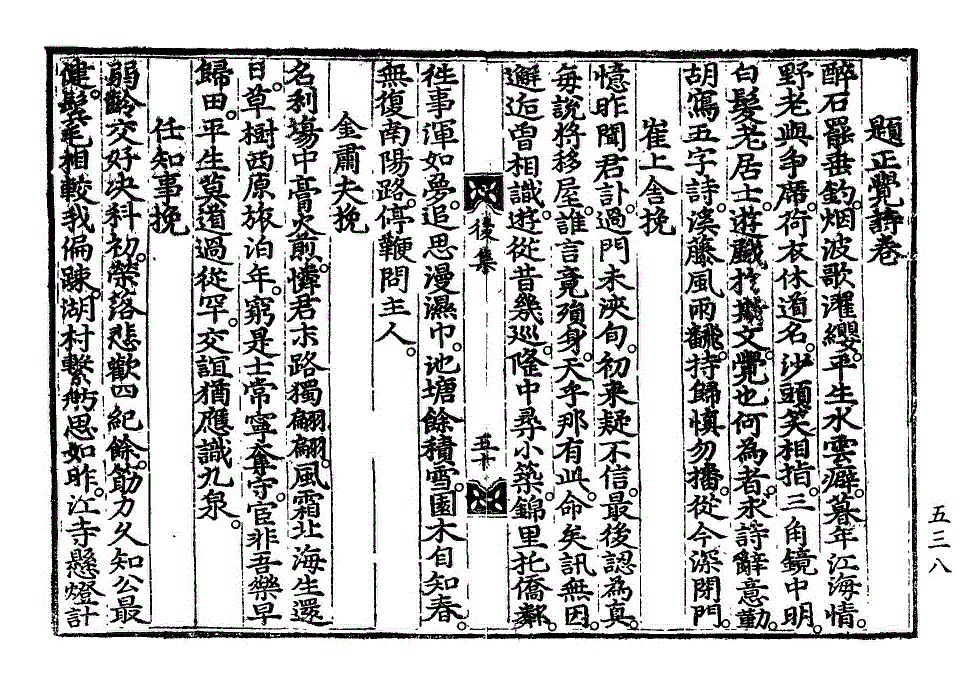 題正覺詩卷
醉石罷垂釣。烟波歌濯纓。平生水雲癖。暮年江海情。
野老與爭席。荷衣休道名。沙頭笑相指。三角鏡中明。
白髮老居士。遊戱於斯文。覺也何為者。求詩辭意勤。
胡寫五字詩。溪藤風雨飜。持歸愼勿播。從今深閉門。
崔上舍挽
憶昨聞君訃。過門未浹旬。初來疑不信。最後認為真。
每說將移屋。誰言竟殞身。天乎那有此。命矣訊無因。
邂逅曾相識。遊從昔幾巡。隆中尋小築。錦里托僑鄰。
後集
五十
徃事渾如夢。追思漫濕巾。池塘餘積雪。園木自知春。
無復南陽路。停鞭問主人。
金肅夫挽
名利場中膏火煎。憐君末路獨翩翩。風霜北海生還
日。草樹西原旅泊年。窮是士常寧奪守。宦非吾樂早
歸田。平生莫道過從罕。交誼猶應識九泉。
任知事挽
弱齡交好决科初。榮落悲歡四紀餘。筋力久知公最
健。鬂毛相較我偏踈。湖村繫舫思如昨。江寺懸燈計
五三八